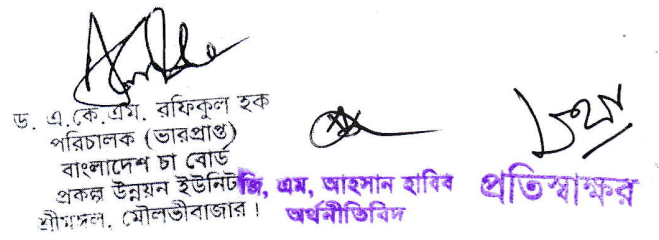 ড. এ.কে.এম. রফিকুল হক
পরিচালক (ভারপ্রাপ্ত)
বাংলাদেশ চা বোর্ড
প্রকল্প উন্নয়ন ইউনিট
শ্রীমঙ্গল, মৌলভীবাজার।
জি, এম, আহসান হাবিব
অর্থনীতিবিদ
প্রতিস্বাক্ষর